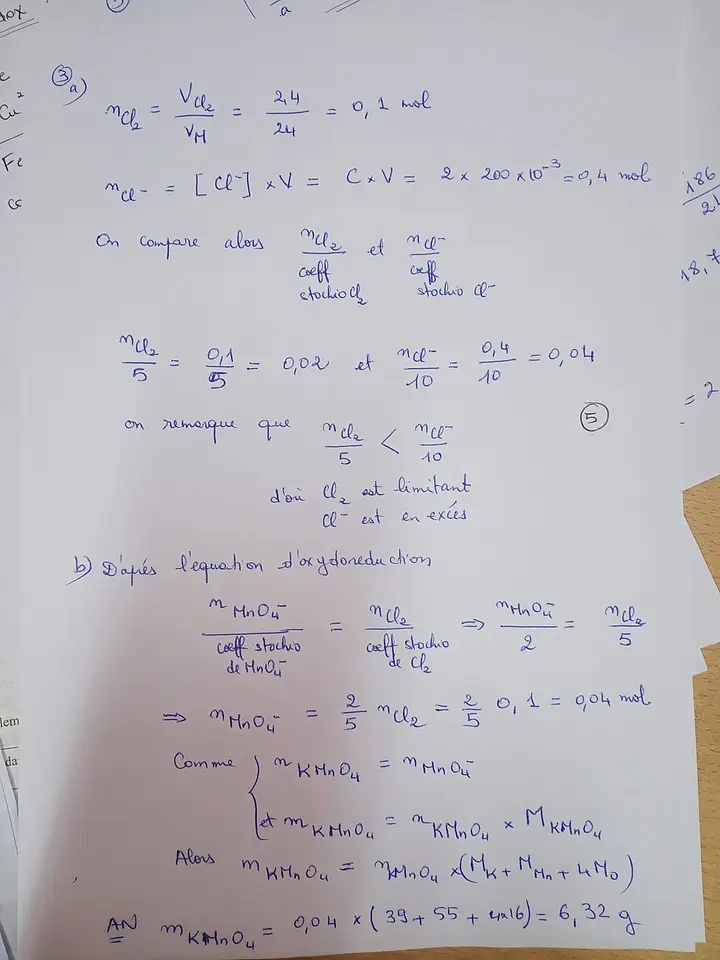 dox
a
③ a)
n_Cl₂ = V_Cl₂ / V_M = 2,4 / 24 = 0,1 mol
Cu²
Fe
n_Cl⁻ = [Cl⁻] × V = C × V = 2 × 200 × 10⁻³ = 0,4 mol
186
On compare alors n_Cl₂ / coeff stochio Cl₂ et n_Cl⁻ / coeff stochio Cl⁻
18,7
n_Cl₂ / 5 = 0,1 / 5 = 0,02 et n_Cl⁻ / 10 = 0,4 / 10 = 0,04
= 2
on remarque que n_Cl₂ / 5 < n_Cl⁻ / 10
⑤
d'où Cl₂ est limitant
Cl⁻ est en excés
b) D'aprés l'équation d'oxydoreduction
n_MnO₄⁻ / coeff stochio de MnO₄⁻ = n_Cl₂ / coeff stochio de Cl₂ ⇒ n_MnO₄⁻ / 2 = n_Cl₂ / 5
⇒ n_MnO₄⁻ = 2/5 n_Cl₂ = 2/5 0,1 = 0,04 mol
lem
da
Comme { n_KMnO₄ = n_MnO₄⁻
et m_KMnO₄ = n_KMnO₄ × M_KMnO₄
Alors m_KMnO₄ = n_KMnO₄ × (M_K + M_Mn + 4M_O)
AN m_KMnO₄ = 0,04 × (39 + 55 + 4×16) = 6,32 g